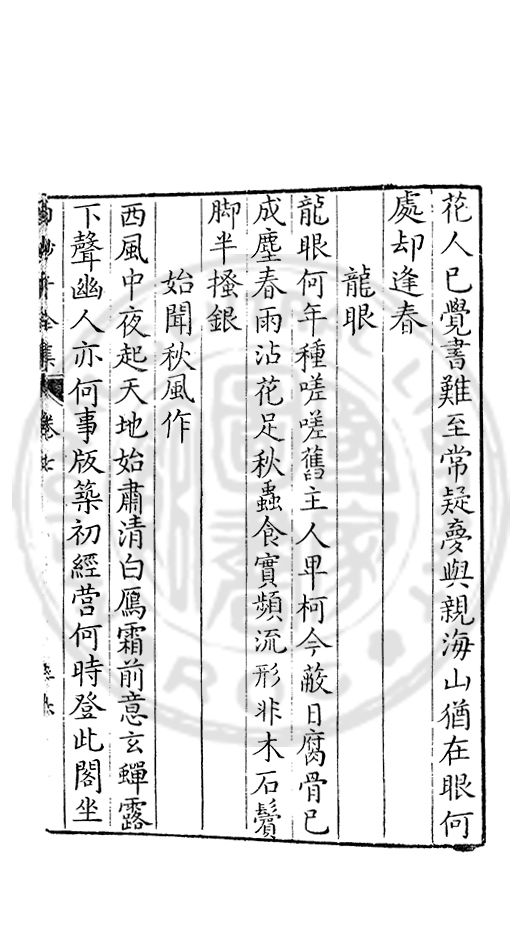 花人已覺書難至常疑夢與親海山猶在眼何
處却逢春
龍眼
龍眼何年種嗟嗟舊主人畢柯今蔽日腐骨已
成塵春雨沾花足秋蟲食實頻流形非木石鬢
脚半搔銀
始聞秋風作
西風中夜起天地始肅清白鴈霜前意玄蟬露
下聲幽人亦何事版築初經營何時登此閣坐
全集 卷七